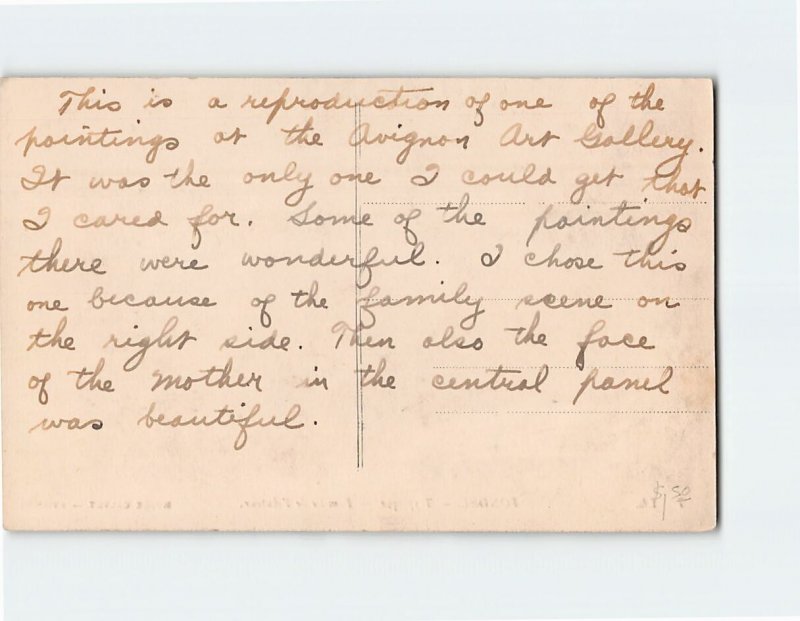 This is a reproduction of one of the
paintings at the Avignon Art Gallery.
It was the only one I could get that
I cared for. Some of the paintings
there were wonderful. I chose this
one because of the family scene on
the right side. Then also the face
of the mother in the central panel
was beautiful.
$1.50